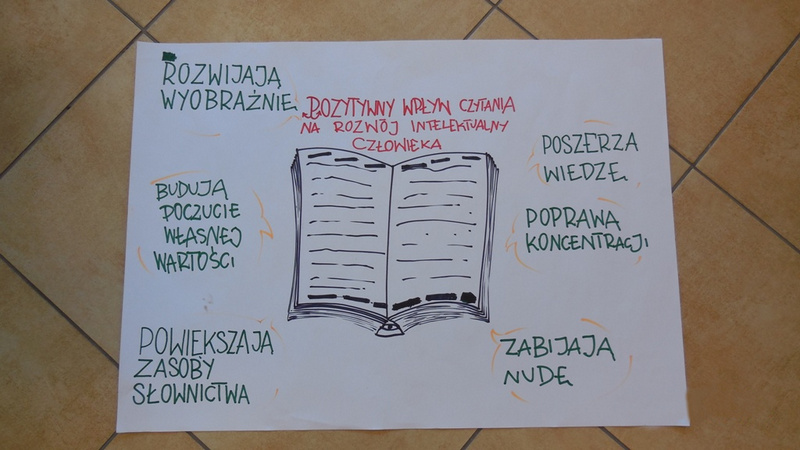 ROZWIJAJĄ
WYOBRAŹNIĘ
POZYTYWNY WPŁYW CZYTANIA
NA ROZWÓJ INTELEKTUALNY
CZŁOWIEKA
POSZERZA
WIEDZĘ
BUDUJĄ
POCZUCIE
WŁASNEJ
WARTOŚCI
POPRAWA
KONCENTRACJI
POWIĘKSZAJĄ
ZASOBY
SŁOWNICTWA
ZABIJAJĄ
NUDĘ